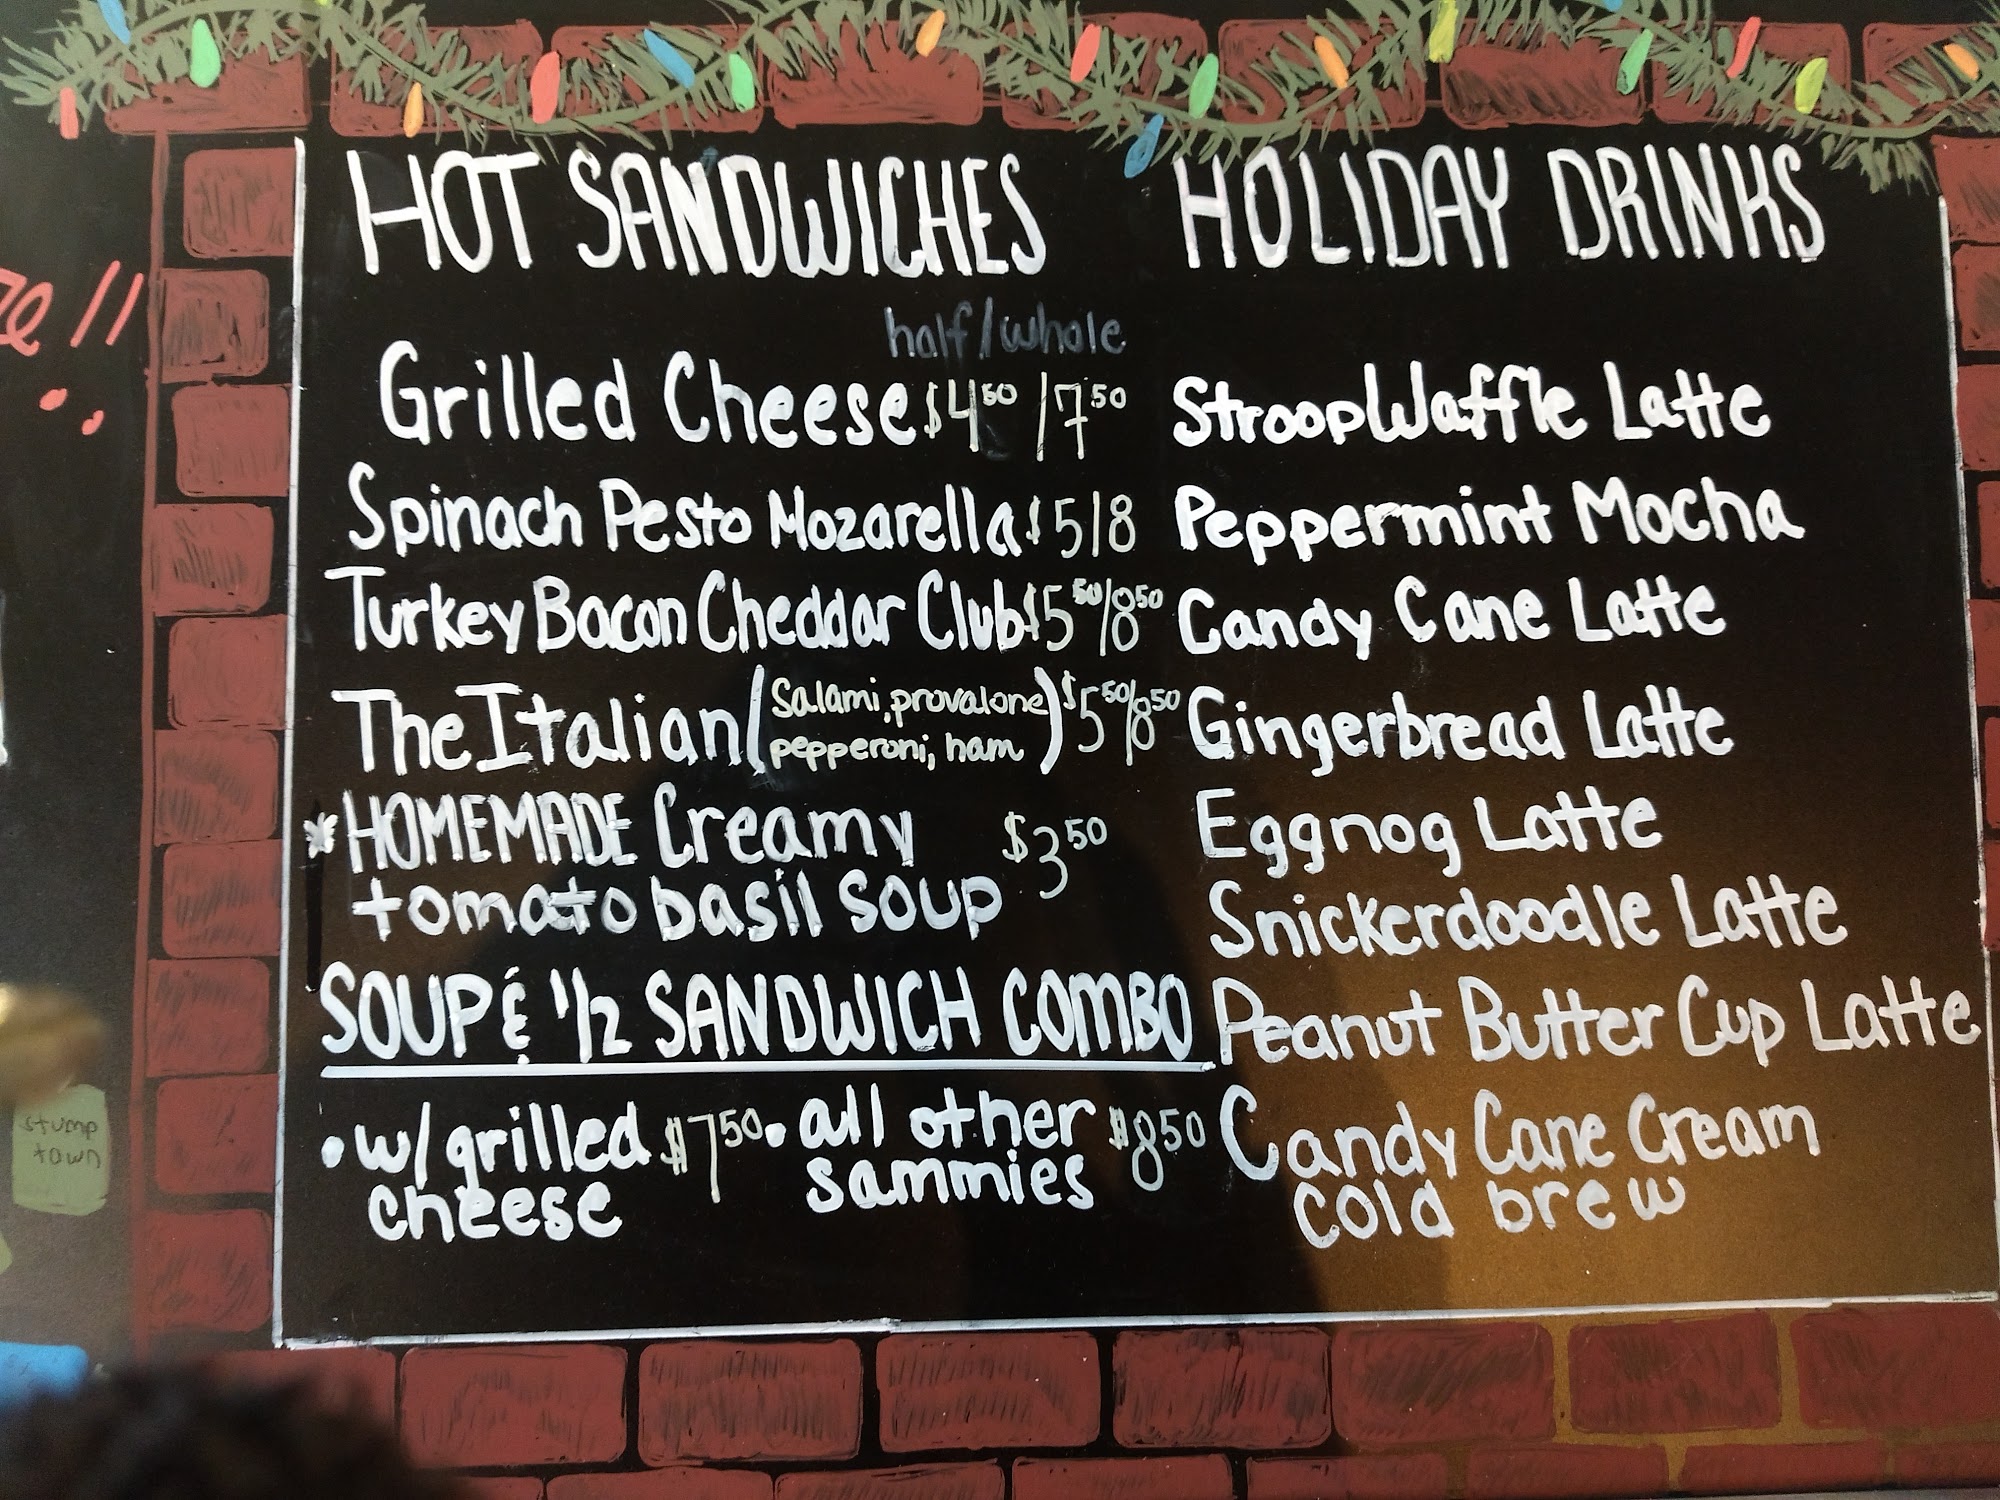 HOT SANDWICHES
half/whole
Grilled Cheese $4 50 / 7 50
Spinach Pesto Mozarella $5/8
Turkey Bacon Cheddar Club $5 50/8 50
The Italian (Salami, provalone
pepperoni, ham) $5 50/8 50
* HOMEMADE Creamy
tomato basil soup $3 50
SOUP & 1/2 SANDWICH COMBO
• w/ grilled
cheese $7 50
• all other
sammies $8 50
HOLIDAY DRINKS
StroopWaffle Latte
Peppermint Mocha
Candy Cane Latte
Gingerbread Latte
Eggnog Latte
Snickerdoodle Latte
Peanut Butter Cup Latte
Candy Cane Cream
cold brew
stump
town